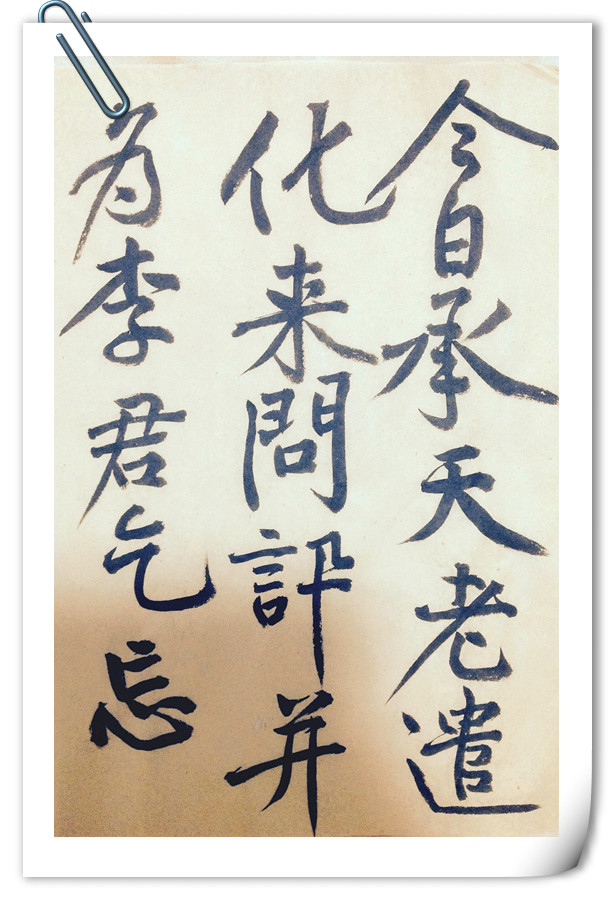 今日承天老遣
化来問訊并
为李君乞忘